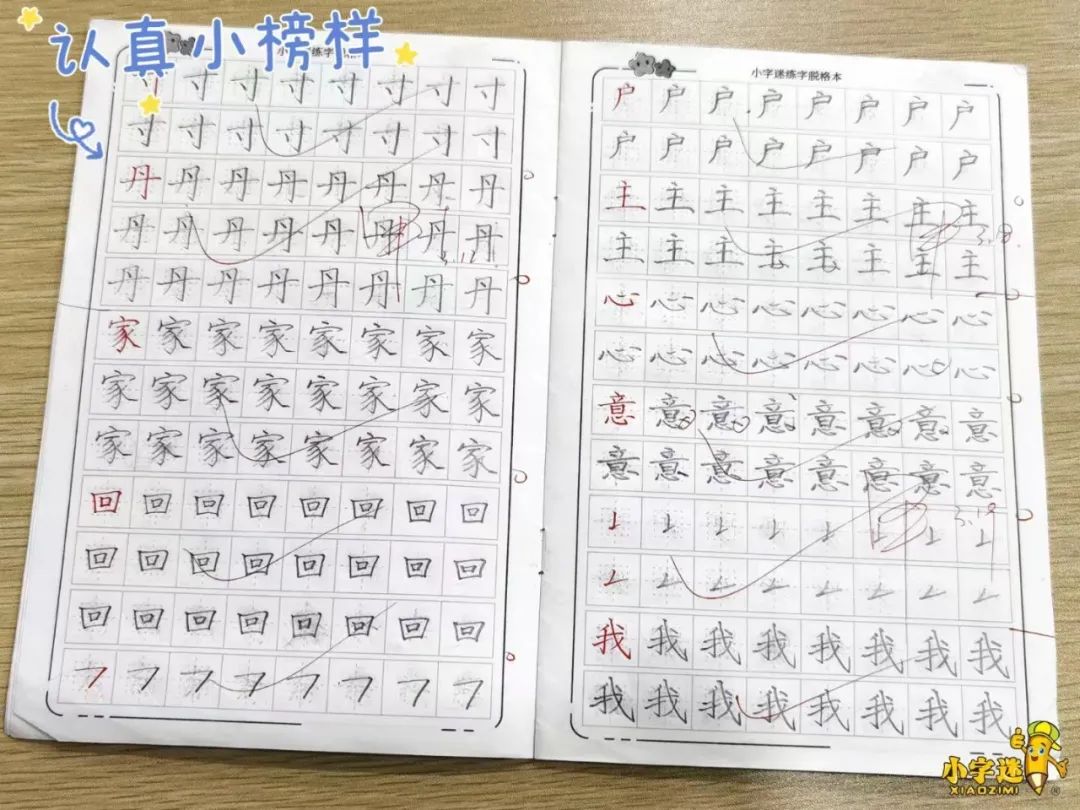 认真小榜样
寸 寸 寸 寸 寸 寸 寸 寸
寸 寸 寸 寸 寸 寸 寸 寸
丹 丹 丹 丹 丹 丹 丹 丹
丹 丹 丹 丹 丹 丹 丹 丹
丹 丹 丹 丹 丹 丹 丹 丹
家 家 家 家 家 家 家 家
家 家 家 家 家 家 家 家
家 家 家 家 家 家 家 家
回 回 回 回 回 回 回 回
回 回 回 回 回 回 回 回
回 回 回 回 回 回 回 回
小字迷练字脱格本
户 户 户 户 户 户 户 户
户 户 户 户 户 户 户 户
主 主 主 主 主 主 主 主
3.18
主 主 主 主 主 主 主 主
心 心 心 心 心 心 心 心
心 心 心 心 心 心 心 心
意 意 意 意 意 意 意 意
意 意 意 意 意 意 意 意
3.19
我 我 我 我 我 我 我 我
我 我 我 我 我 我 我 我
小字迷
XIAOZIMI